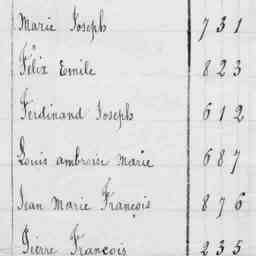 Marie Joseph 731
Félix Emile 823
Ferdinand Joseph 612
Louis ambroise Marie 687
Jean Marie François 876
Pierre François 235